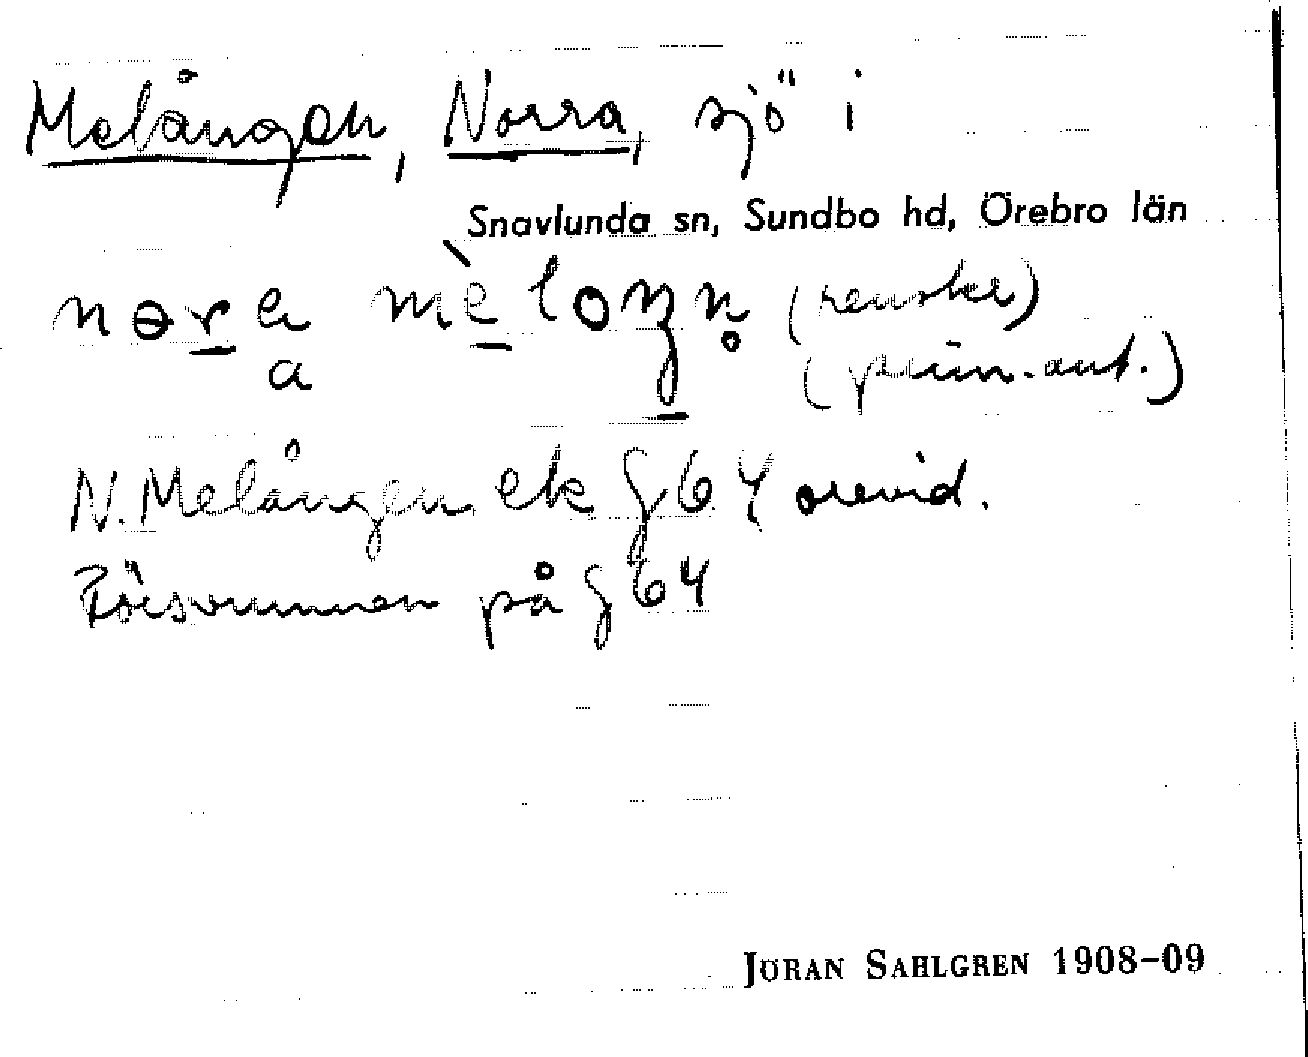 Melången, Norra, sjö i
Snavlunda sn, Sundbo hd, Örebro län
(renskr)
a (prim.ant.)
N. Melången ek § 64 orevid.
Försvunnen på § 64
JÖRAN SAHLGREN 1908-09